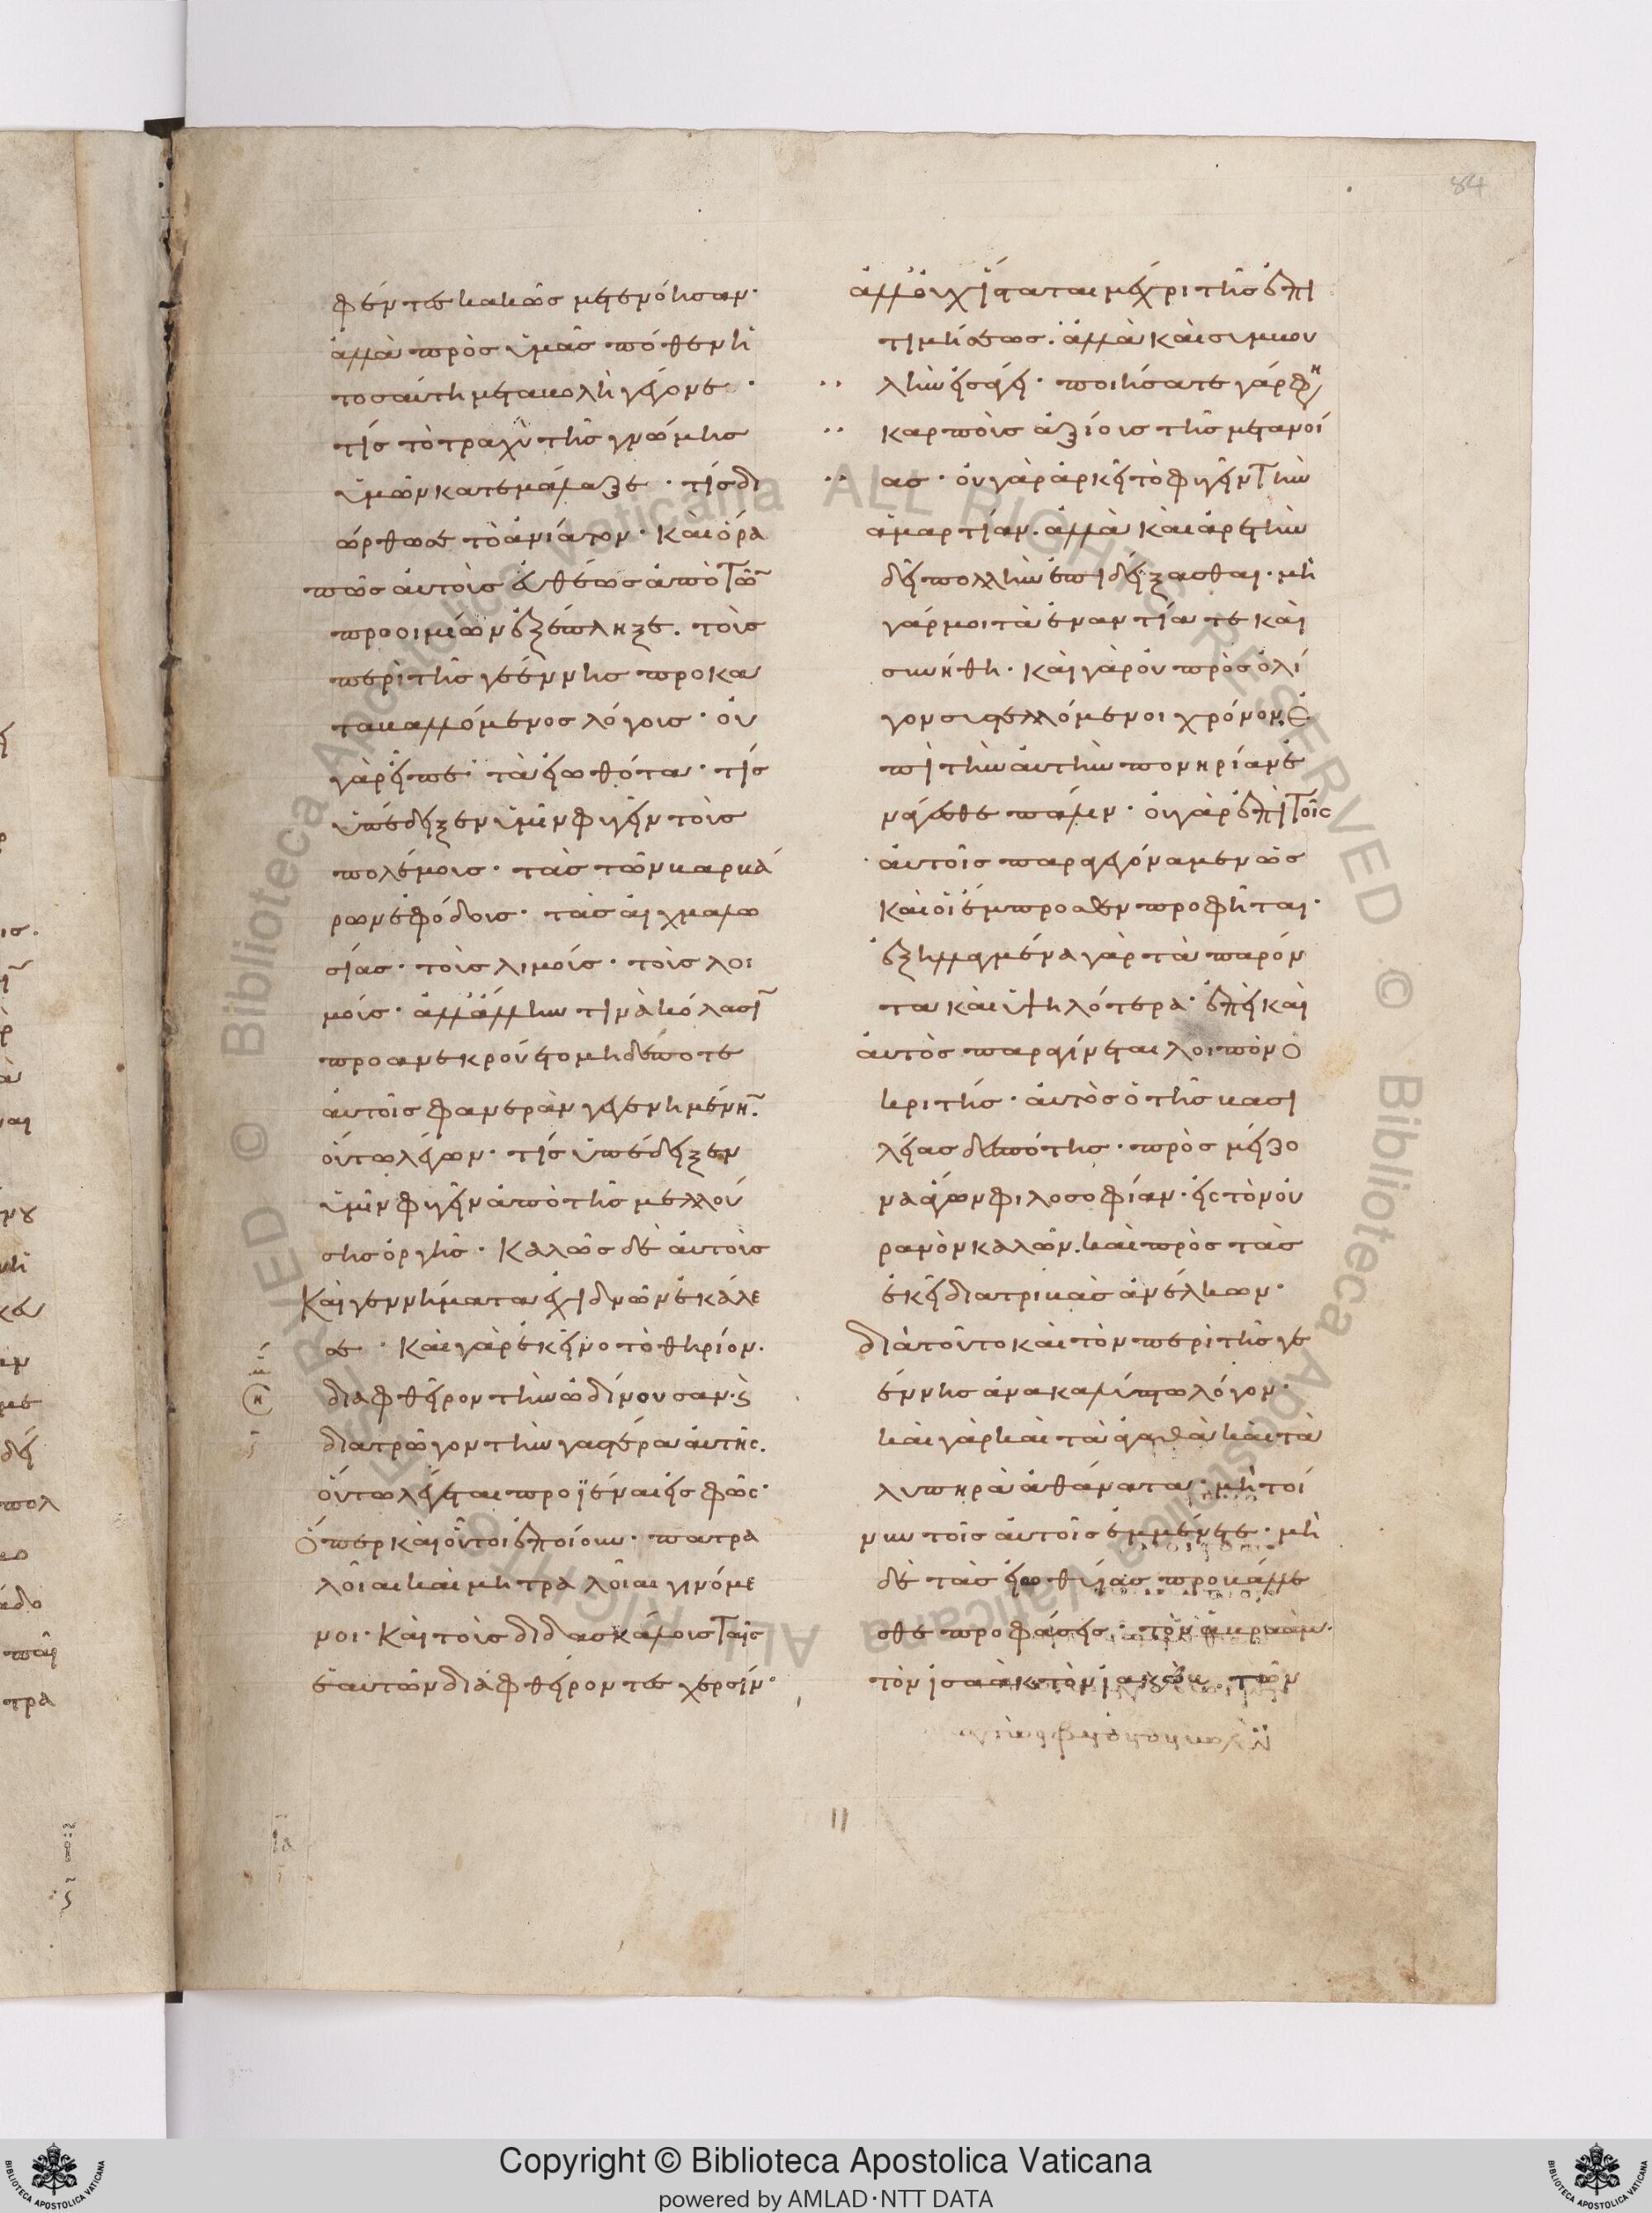 84
φέντες κακῶς μετενόησαν·
ἀλλὰ πρὸς ὑμᾶς πόθεν ἡ
τοσαύτη μεταβολὴ γέγονε·
τίς τὸ τραχὺ τῆς γνώμης
ὑμῶν κατεμάλαξε· τίς δι
ώρθωσε τὸ ἀνίατον· Καὶ ὅρα
πῶς αὐτοὺς εὐθέως ἀπὸ τῶ
προοιμίων ἐξέπληξε. τοὺς
περὶ τῆς γεέννης προκα
ταβαλλόμενος λόγους· οὐ
γὰρ εἶπε· τὰ εἰωθότα· τίς
ὑπέδειξεν ὑμῖν φυγεῖν τοὺς
πολέμους· τὰς τῶν βαρβά
ρων ἐφόδους· τὰς αἰχμαλω
σίας· τοὺς λιμούς· τοὺς λοι
μούς· ἀλλ' ἄλλην τινὰ κόλασῖ
προανεκρούετο μηδέποτε
αὐτοῖς φανερὰν γεγενημένη̃.
οὕτω λέγων· τίς ὑπέδειξεν
ὑμῖν φυγεῖν ἀπὸ τῆς μελλού
σης ὀργῆς· Καλῶς δὲ αὐτοὺς
Καὶ γεννήματα ἐχιδνῶν ἐκάλε
σε· Καὶ γὰρ ἐκεῖνο τὸ θηρίον.
διαφθεῖρον τὴν ὠδίνουσαν· ϗ
διατρῶγον τὴν γαστέρα αὐτῆς.
οὕτω λέγεται προϊέναι εἰς φῶς·
Ὅπερ καὶ οὗτοι ἐποίουν· πατρα
λοῖαι καὶ μητραλοῖαι γινόμε
νοι· Καὶ τοὺς διδασκάλους ταῖς
ἑαυτῶν διαφθείροντες χερσίν·
ἀλλ' οὐχ ἵσταται μέχρι τῆς ἐπι
τιμήσεως. ἀλλὰ καὶ συμβου
λὴν εἰσάγει· ποιήσατε γάρ φη
καρποὺς ἀξίους τῆς μετανοί
ας· οὐ γὰρ ἀρκεῖ τὸ φυγεῖν τὴν
ἁμαρτίαν. ἀλλὰ καὶ ἀρετὴν
δεῖ πολλὴν ἐπιδείξασθαι· μὴ
γάρ μοι τὰ ἐναντία τε καὶ
συνήθη· Καὶ γὰρ οὐ πρὸς ὀλί
γον συστελλόμενοι χρόνον ἐ
πὶ τὴν αὐτὴν πονηρίαν ἐ
νάγεσθε πάλιν· οὐ γὰρ ἐπὶ τοῖς
αὐτοῖς παραγεγόναμεν ὡς
καὶ οἱ ἔμπροσθεν προφῆται·
ἐξηλλαγμένα γὰρ τὰ παρόν
τα καὶ ὑψηλότερα· ἐπεὶ καὶ
αὐτὸς παραγίνεται λοιπὸν ὁ
κριτής· αὐτὸς ὁ τῆς βασι
λείας δεσπότης· πρὸς μείζο
να ἄγων φιλοσοφίαν· εἰς τὸν οὐ
ρανὸν καλῶν. καὶ πρὸς τὰς
ἐκεῖ διατριβὰς ἀνέλκων·
Διὰ τοῦτο καὶ τὸν περὶ τῆς γε
έννης ἀνακαλύπτω λόγον·
καὶ γὰρ καὶ τὰ ἀγαθὰ καὶ τὰ
λυπηρὰ ἀθάνατα· μὴ τοί
νυν τοῖς αὐτοῖς ἐμμένετε· μὴ
δὲ τὰς εἰωθυίας προβάλλε
σθε προφάσεις· τὸν ἀβραάμ.
τὸν ἰσαὰκ τὸν ἰακώβ. τῶν